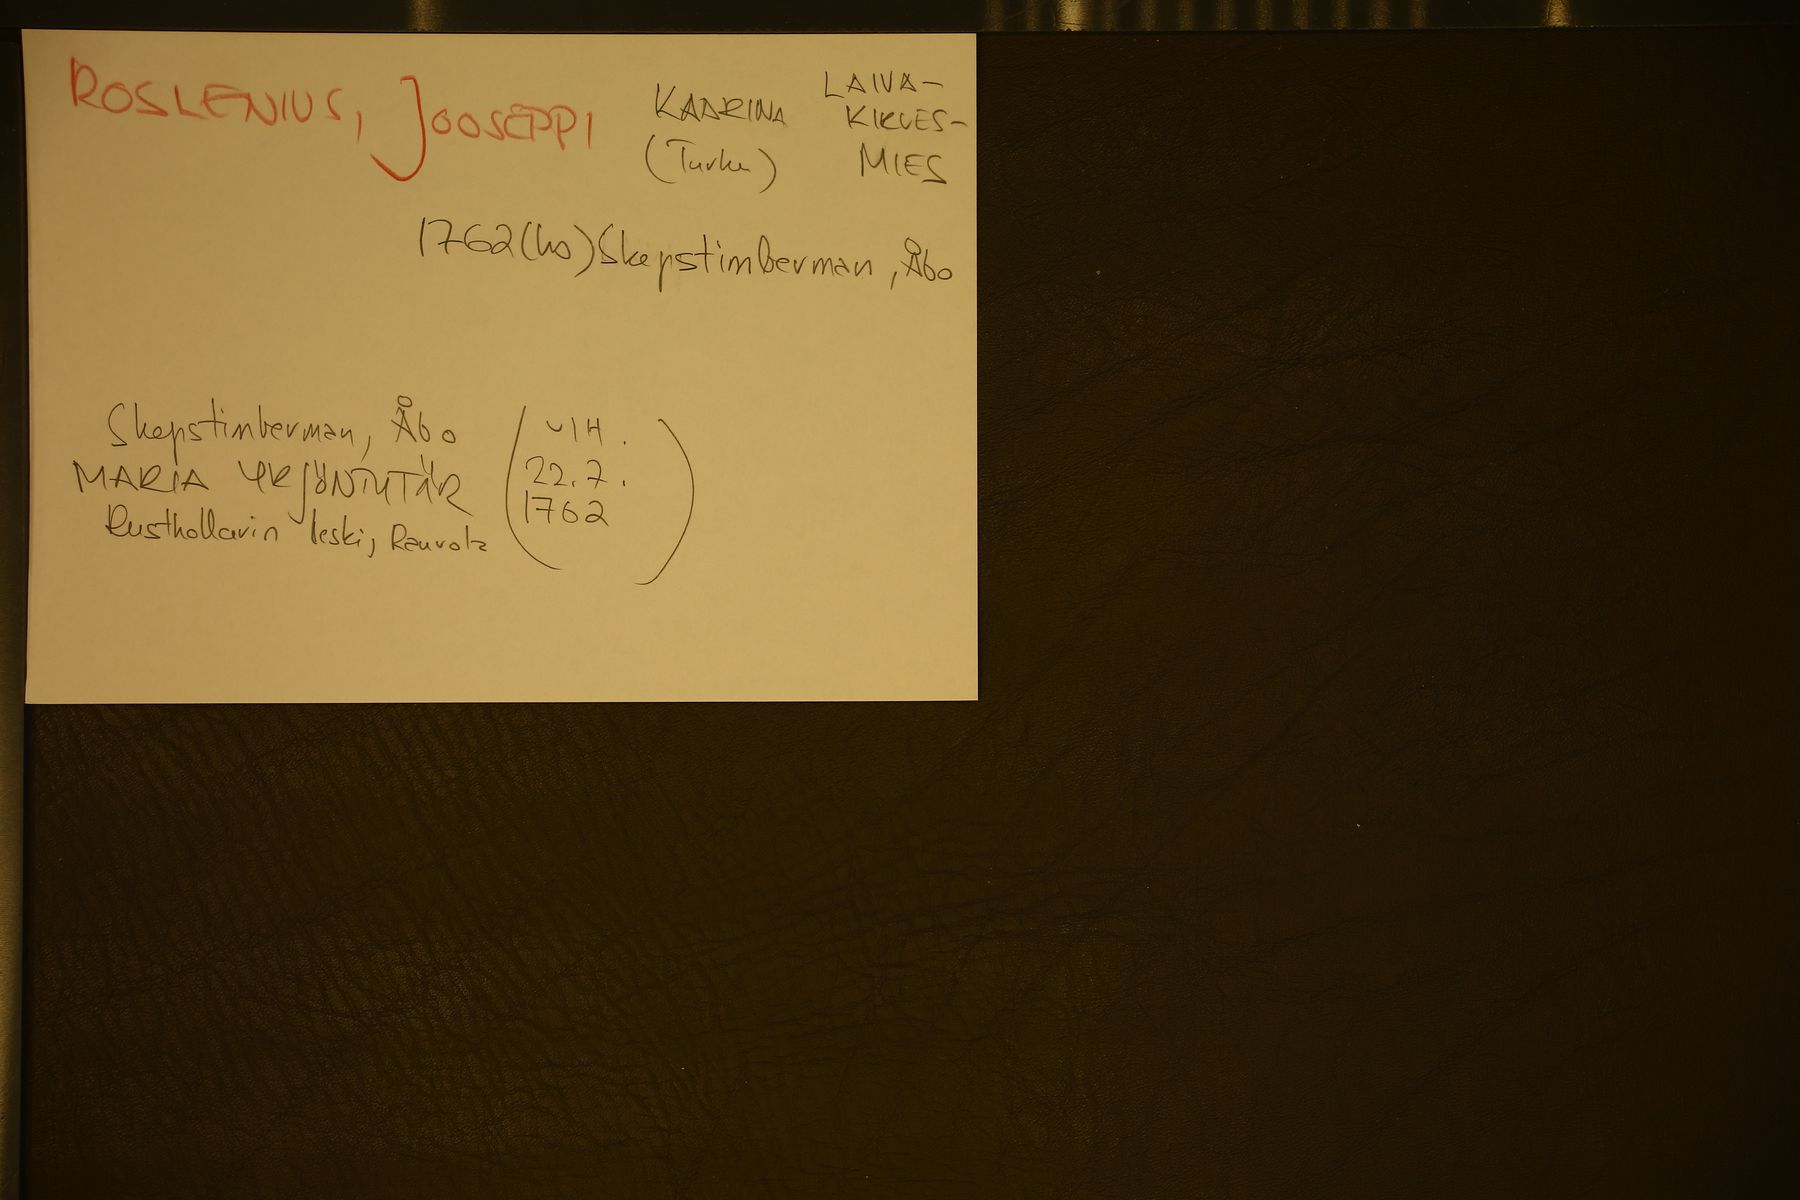 ROSLENIUS, JOOSEPPI
KAARINA
(Turku)
LAIVA-
KIRVES-
MIES
1762 (ho) Skepstimberman, Åbo
Skepstimberman, Åbo
MARIA YRJÖNTYTÄR
Rusthollarin leski, Rauvola
(VIH.
22.7.
1762)